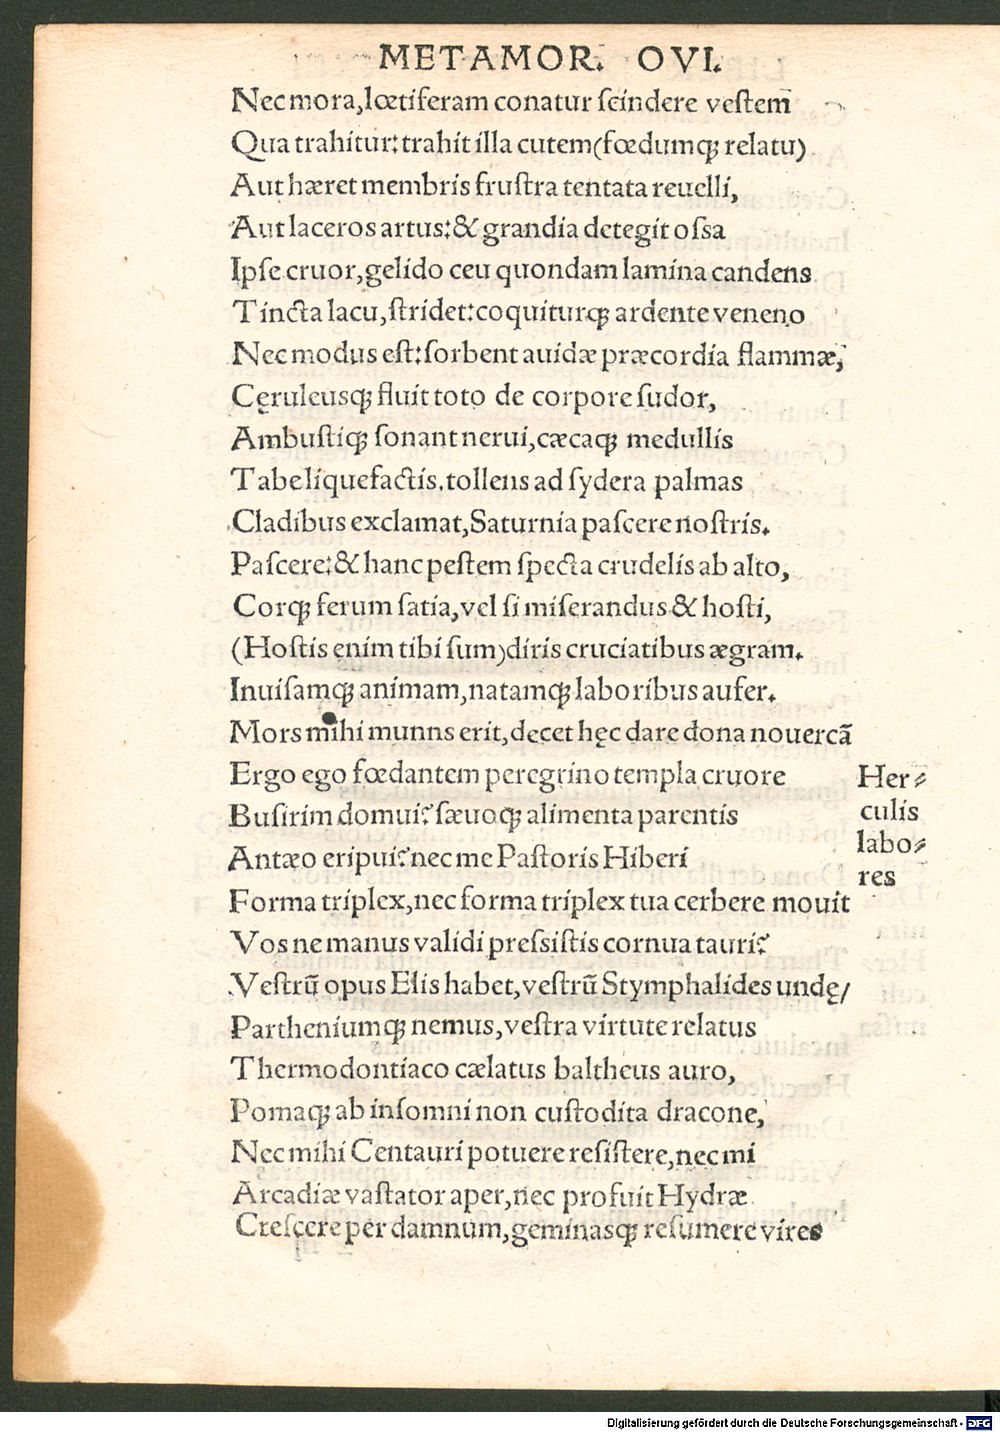 METAMOR. OVI.
Nec mora, lœtiferam conatur ſcindere veſtem
Qua trahitur: trahit illa cutem (fœdumqꝫ relatu)
Aut hæret membris fruſtra tentata reuelli,
Aut laceros artus: & grandia detegit oſſa
Ipſe cruor, gelido ceu quondam lamina candens
Tincta lacu, ſtridet: coquiturqꝫ ardente veneno
Nec modus eſt: ſorbent auidæ præcordia flammæ,
Cęruleusqꝫ fluit toto de corpore ſudor,
Ambuſtiqꝫ ſonant nerui, cæcaqꝫ medullis
Tabe liquefactis. tollens ad ſydera palmas
Cladibus exclamat, Saturnia paſcere noſtris.
Paſcere: & hanc peſtem ſpecta crudelis ab alto,
Corqꝫ ferum ſatia, vel ſi miſerandus & hoſti,
(Hoſtis enim tibi ſum) diris cruciatibus ægram.
Inuiſamqꝫ animam, natamqꝫ laboribus aufer.
Mors mihi munns erit, decet hęc dare dona nouercã
Ergo ego fœdantem peregrino templa cruore
Buſirim domui? ſæuoqꝫ alimenta parentis
Antæo eripui? nec me Paſtoris Hiberi
Forma triplex, nec forma triplex tua cerbere mouit
Vos ne manus validi preſſiſtis cornua tauri?
Veſtrũ opus Elis habet, veſtrũ Stymphalides undę/
Partheniumqꝫ nemus, veſtra virtute relatus
Thermodontiaco cælatus baltheus auro,
Pomaqꝫ ab inſomni non cuſtodita dracone,
Nec mihi Centauri potuere reſiſtere, nec mi
Arcadiæ vaſtator aper, nec profuit Hydræ
Creſcere per damnum, geminasqꝫ reſumere vires
Her⸗
culis
labo⸗
res
Digitalisierung gefördert durch die Deutsche Forschungsgemeinschaft - DFG